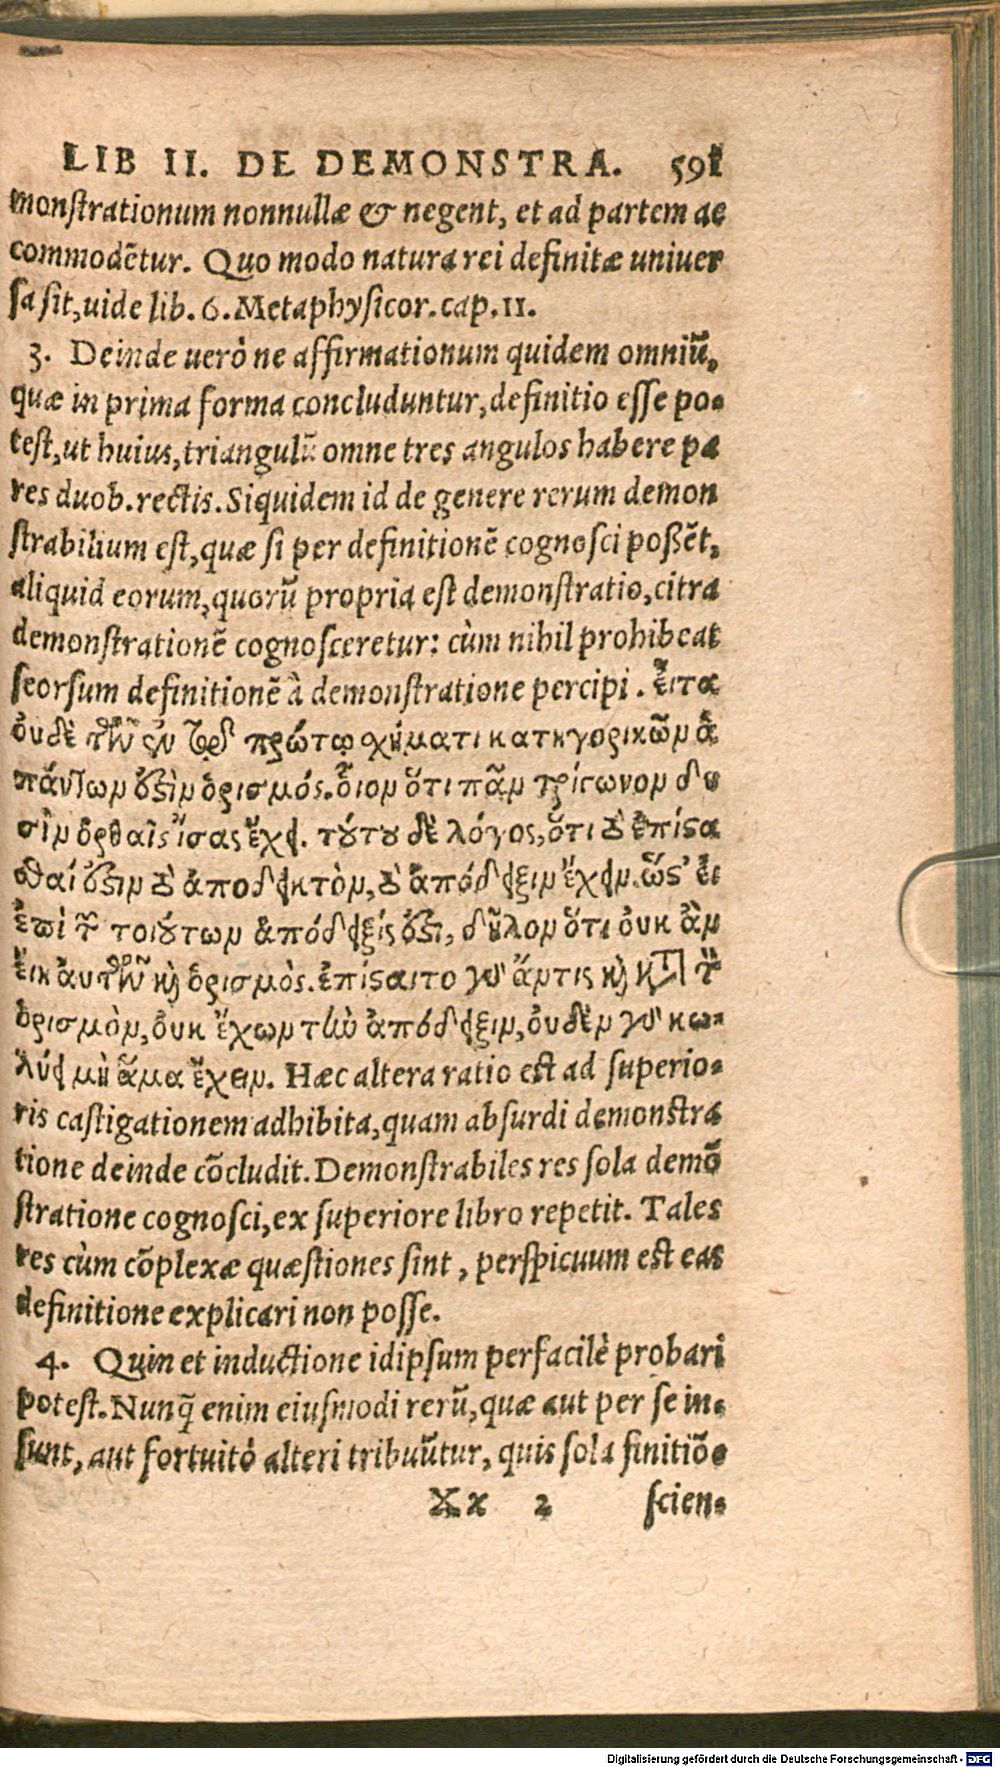 LIB II. DE DEMONSTRA. 591
monstrationum nonnullæ & negent, et ad partem ac
commodẽtur. Quo modo natura rei definitæ uniuer
sa sit, uide lib. 6. Metaphysicor. cap. 11.
3. Deinde uerò ne affirmationum quidem omniũ,
quæ in prima forma concluduntur, definitio esse po-
test, ut huius, triangulũ omne tres angulos habere pa
res duob. rectis. Siquidem id de genere rerum demon
strabilium est, quæ si per definitionẽ cognosci poßẽt,
aliquid eorum, quorũ propria est demonstratio, citra
demonstrationẽ cognosceretur: cùm nihil prohibeat
seorsum definitionẽ à demonstratione percipi. εἶτα
οὐδὲ τῶν ἐν τῷ πρώτῳ σχήματι κατηγορικῶν ἁ
πάντων ἐστὶν ὁρισμός. οἷον ὅτι πᾶν τρίγωνον δυ
σὶν ὀρθαῖς ἴσας ἔχει. τούτου δὲ λόγος, ὅτι τὸ ἐπίστα
σθαί ἐστιν τὸ ἀποδεικτὸν, τὸ ἀπόδειξιν ἔχειν. ὥστ' εἰ
ἐπὶ τῶν τοιούτων ἀπόδειξίς ἐστι, δῆλον ὅτι οὐκ ἂν
εἴη αὐτῶν καὶ ὁρισμὸς. ἐπίσταιτο γὰρ ἄν τις καὶ κατὰ τὸν
ὁρισμὸν, οὐκ ἔχων τὴν ἀπόδειξιν, οὐδὲν γὰρ κω-
λύει μὴ ἅμα ἔχειν. Hæc altera ratio est ad superio-
ris castigationem adhibita, quam absurdi demonstra
tione deinde cõcludit. Demonstrabiles res sola demõ
stratione cognosci, ex superiore libro repetit. Tales
res cùm cõplexæ quæstiones sint, perspicuum est eas
definitione explicari non posse.
4. Quin et inductione idipsum perfacilè probari
potest. Nunq̃ enim eiusmodi rerũ, quæ aut per se in-
sunt, aut fortuitò alteri tribuũtur, quis sola finitiõe
Xx 2 scien-
Digitalisierung gefördert durch die Deutsche Forschungsgemeinschaft - DFG